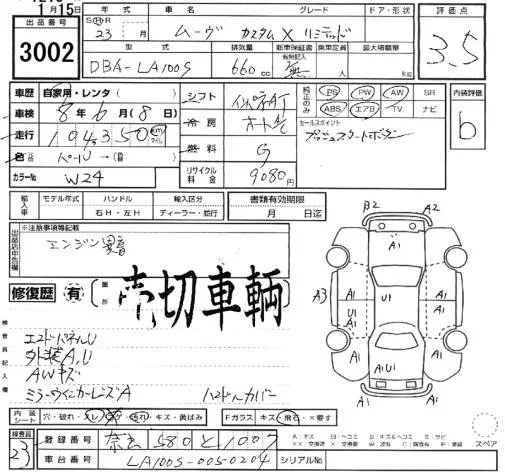 1月15日
出品番号
3002
年式 車名 グレード ドア・形状
SHR 23 月 ムーヴ カスタム X リミテッド
型式 排気量 新車保証書 乗車定員 最大積載量
有無記入
DBA-LA100S 660cc 無 人 kg
評価点
3.5
車歴 自家用・レンタ( )
車検 8年6月(8日)
走行 104350 km マイル
色 パール→( )
カラーNo W24
シフト インパネAT
冷房 オートAC
燃料 G
リサイクル料金 9080円
純正のみ PS PW AW SR
ABS エアB TV ナビ
セールスポイント
プッシュスタートボタン
内装評価
b
輸入車 モデル年式 ハンドル 輸入区分
年 右H・左H ディーラー・並行
書類有効期限
月 日迄
出品店申告欄 ※注意事項等記載
エンジン異音
修復歴 有 箇所
売切車輌
検査員記入欄
エンドパネルU
外装A,U
AWキズ
ミラーウィンカーレンズA ハンドルカバー
B2 A2
A1
A3 A1 U1 A1 A1
A1 A1
A1U1
A1
内装シート 穴・破れ・キズ・黄ばみ Fガラス キズ・飛石・×要す
検査員 23
登録番号 奈良 580 と 1007
車台番号 LA100S-0050204 シリアルNo.
スペア